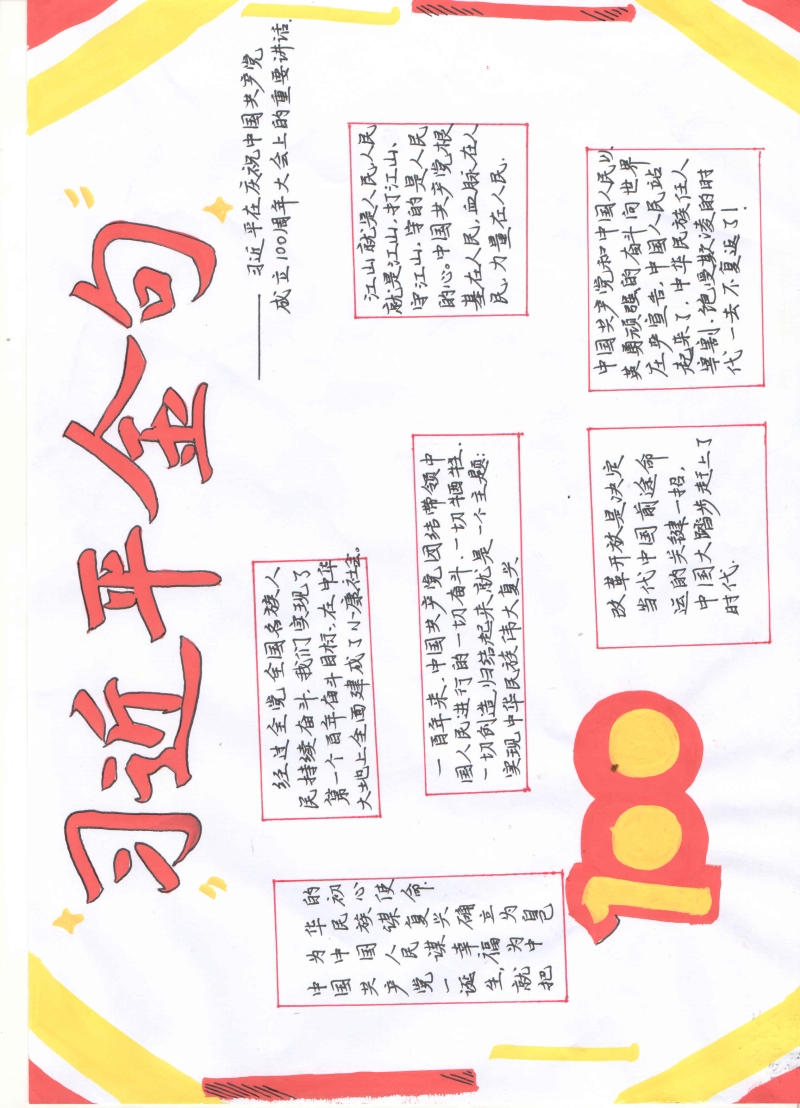 习近平金句
——习近平在庆祝中国共产党
成立100周年大会上的重要讲话.
中国共产党一诞生,就把
为中国人民谋幸福,为中
华民族谋复兴确立为自己
的初心使命.
经过全党全国各族人
民持续奋斗,我们实现了
第一个百年奋斗目标,在中华
大地上全面建成了小康社会。
一百年来,中国共产党团结带领中
国人民进行的一切奋斗、一切牺牲、
一切创造,归结起来,就是一个主题:
实现中华民族伟大复兴
江山就是人民,人民
就是江山,打江山、
守江山,守的是人民
的心。中国共产党根
基在人民,血脉在人
民,力量在人民.
100
改革开放是决定
当代中国前途命
运的关键一招,
中国大踏步赶上了
时代.
中国共产党和中国人民以
英勇顽强的奋斗向世界
庄严宣告,中国人民站
起来了,中华民族任人
宰割、饱受欺凌的时
代一去不复返了!